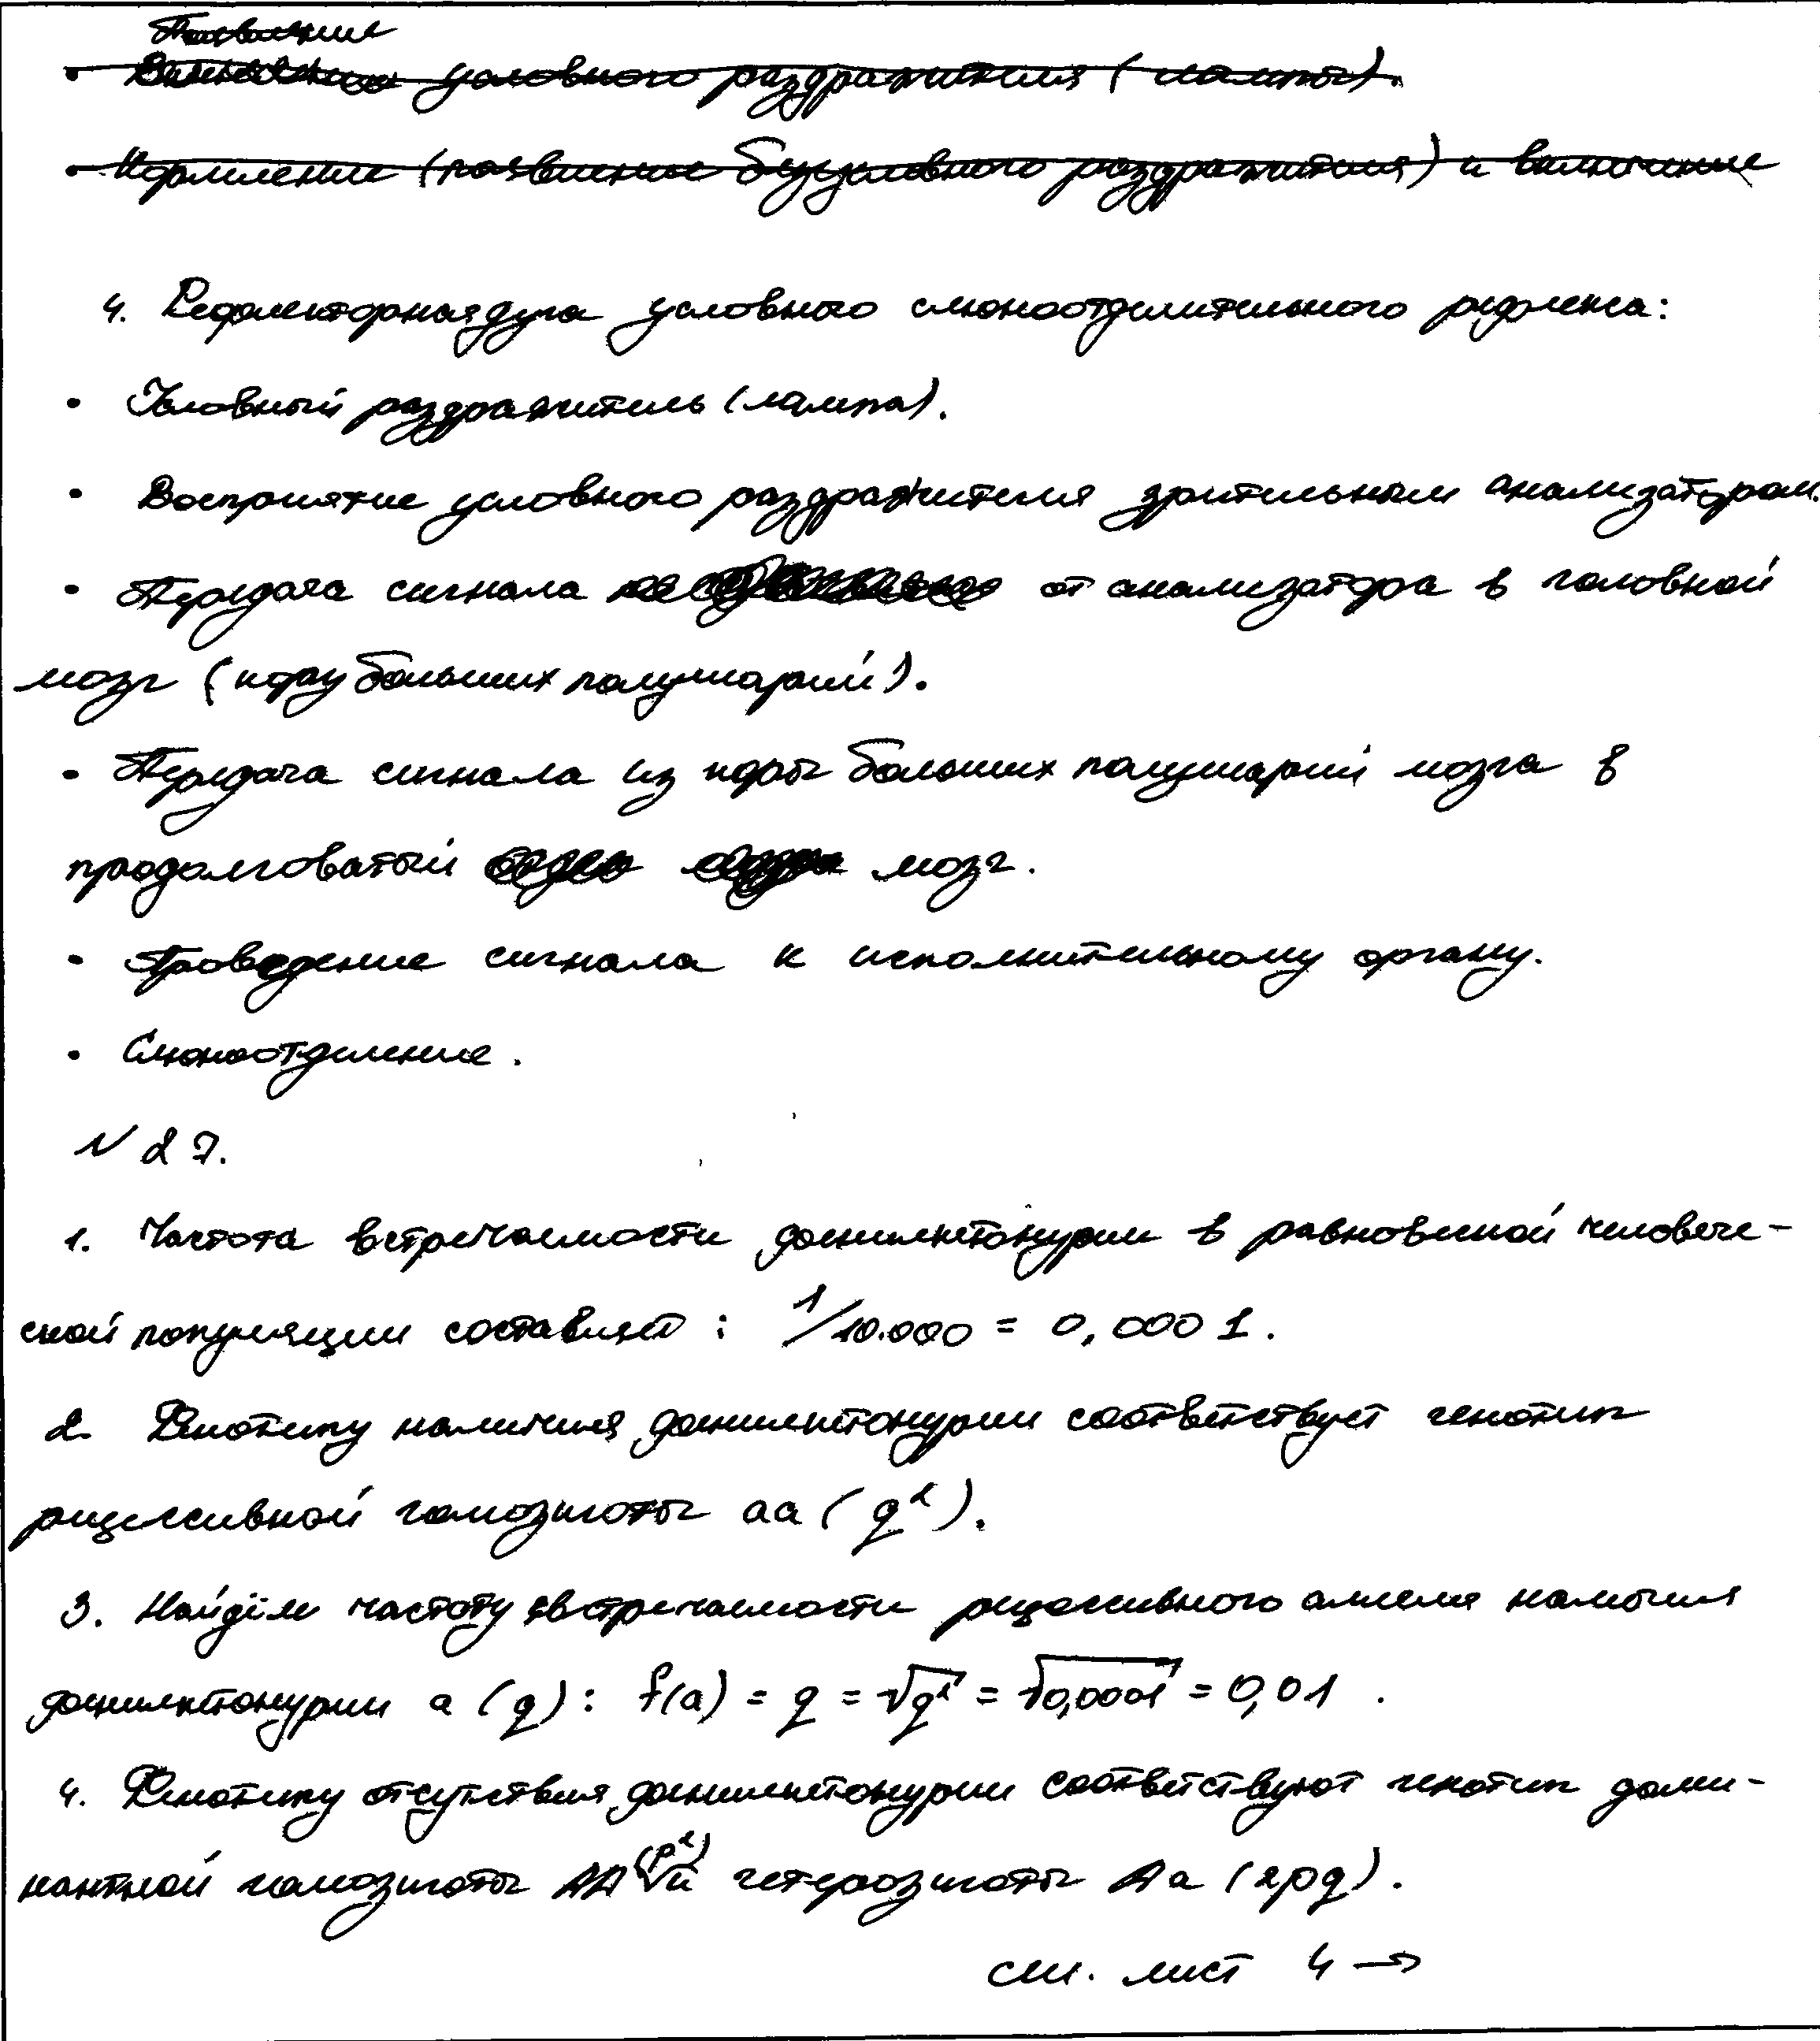 Появление
• условного раздражителя (лампы).
• Кормление (появление безусловного раздражителя) и включение
4. Рефлекторная дуга условного слюноотделительного рефлекса:
• Условный раздражитель (лампа).
• Восприятие условного раздражителя зрительным анализатором.
• Передача сигнала от анализатора в головной
мозг (кору больших полушарий).
• Передача сигнала из коры больших полушарий мозга в
продолговатый мозг.
• Проведение сигнала к исполнительному органу.
• Слюноотделение.
№ 27.
1. Частота встречаемости фенилкетонурии в равновесной человече-
ской популяции составляет: 1/10.000 = 0,0001.
2. Фенотипу наличия фенилкетонурии соответствует генотип
рецессивной гомозиготы aa (q²).
3. Найдём частоту встречаемости рецессивного аллеля наличия
фенилкетонурии a (q): f(a) = q = √q² = √0,0001 = 0,01.
4. Фенотипу отсутствия фенилкетонурии соответствуют генотип доми-
нантной гомозиготы AA (p²) и гетерозиготы Aa (2pq).
см. лист 4 →